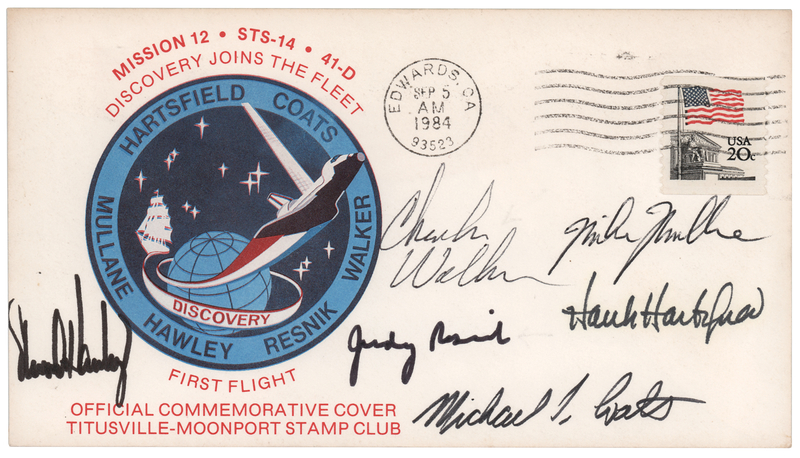 MISSION 12 • STS-14 • 41-D
DISCOVERY JOINS THE FLEET
HARTSFIELD COATS
WALKER
RESNIK
HAWLEY
MULLANE
DISCOVERY
FIRST FLIGHT
OFFICIAL COMMEMORATIVE COVER
TITUSVILLE-MOONPORT STAMP CLUB
EDWARDS, CA
SEP 5
AM
1984
93523
USA
20c
Charles
Walker
Mike Mullane
Hank Hartsfield
Judy Resnik
Michael L. Coats
Steven A. Hawley